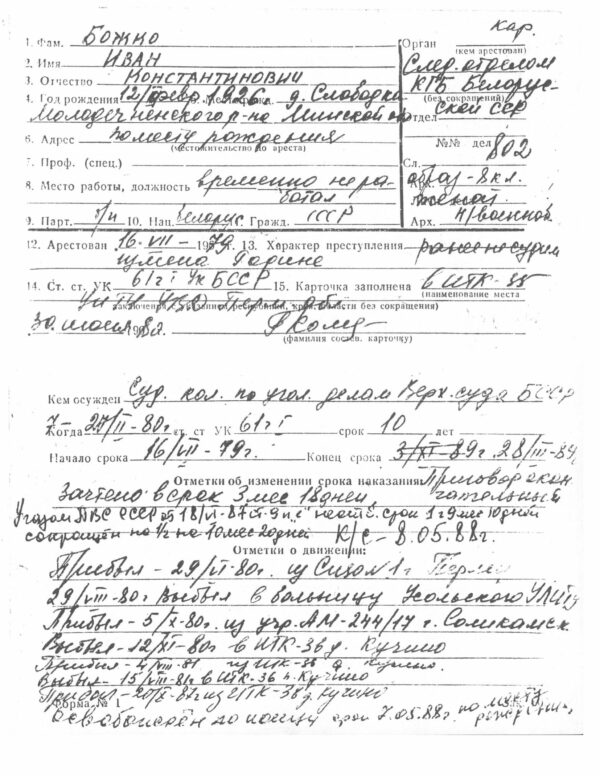 Кар.
1. Фам. БОЖКО
Орган
(кем арестован)
2. Имя ИВАН
След. отделом
3. Отчество КОНСТАНТИНОВИЧ
КГБ Белорус-
(без сокращений)
ской ССР
4. Год рождения 12/февр 1926 д. Слободка
Молодечненского р-на Минской
Отдел
6. Адрес по месту рождения
(местожительство до ареста)
№№ дел 802
7. Проф. (спец.)
Сл.
8. Место работы, должность временно не ра-
ботал
образ-8 кл.
женат.
9. Парт. б/п 10. Нац. белорус Гражд. СССР
Арх. н/военноб
12. Арестован 16-VII-1979 13. Характер преступления ранее не судим
измена Родине
14. Ст. ст. УК 61 ч I Ук БССР 15. Карточка заполнена в ИТК-35
(наименование места
УИТУ УВД Перм. обл.
заключения без сокращения)
30. июля 198
(фамилия состав. карточку)
Кем осужден Суд. кол. по угол. делам Верх. суда БССР
Когда ст. ст УК 61 ч I срок 10 лет
Начало срока 16/VII-79г. Конец срока 28/III-89
Отметки об изменении срока наказания Приговор окон
чательный
Зачтено в срок 3 мес 18 дней
Указом ПВС СССР от 18/VI-87г срок 1 г 9 мес 10 дней
сокращён на 1/2 на 10 мес 20 дней К/с - 8.05.88г.
Отметки о движении:
Прибыл - 29/VI-80г. из Сизо № 1 г. Перми
29/VIII-80г Выбыл в больницу Усольского УЛИТУ
Прибыл - 5/X-80г. из учр. АМ-244/17 г. Соликамск
Выбыл - 12/XI-80г в ИТК-36 д. Кучино
Прибыл - 4/VIII-81 из ИТК-36 д. Кучино.
Выбыл - 15/VIII-81г в ИТК-36 п. Кучино
Прибыл - 20/X-87г из ИТК-36 д. Кучино
Форма № 1
Освобожден по концу срок 7.05.88г. по месту
рождения